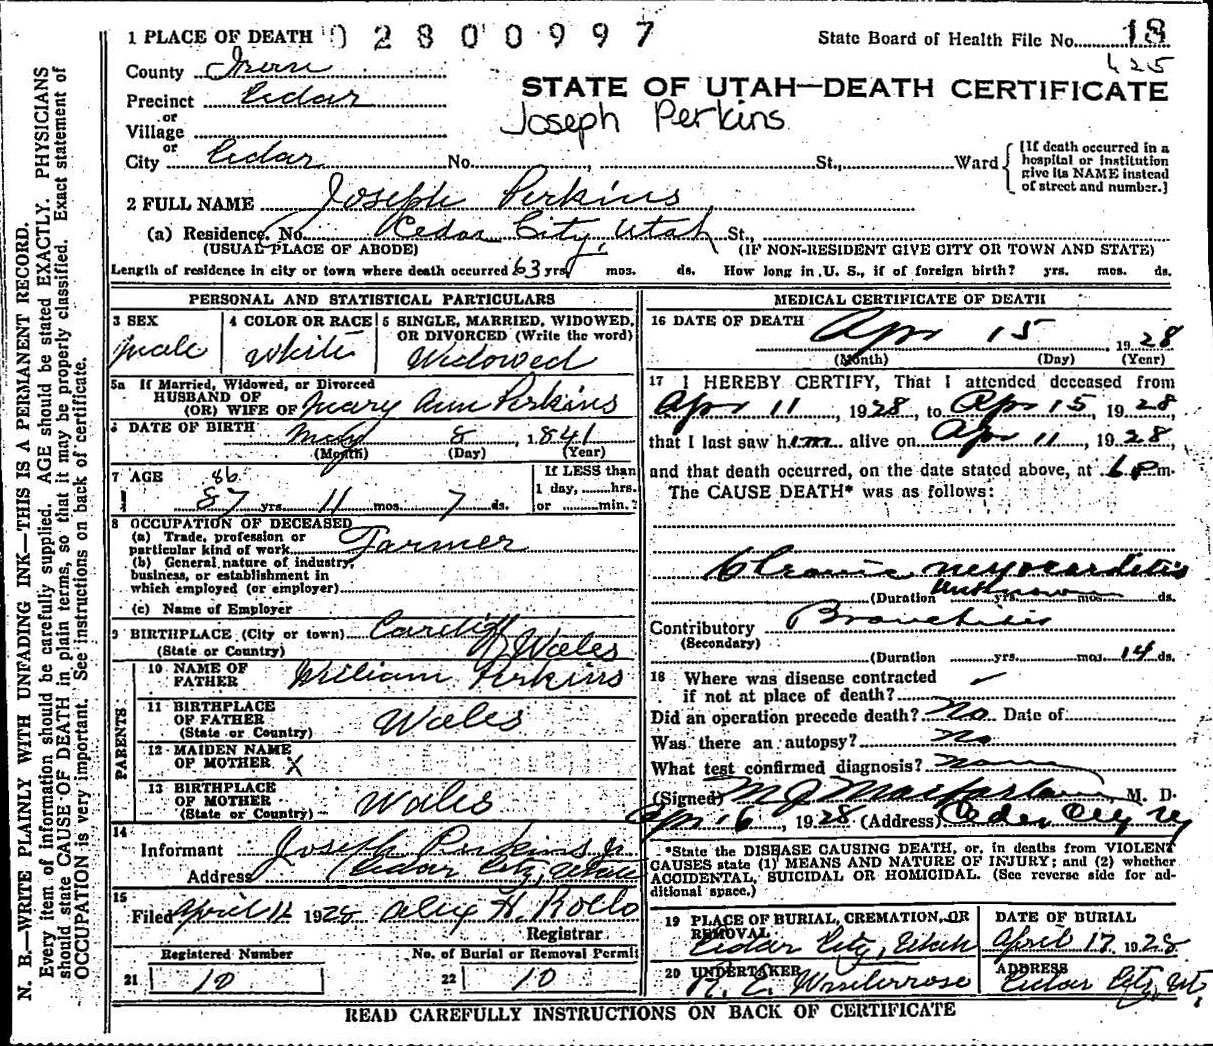 1 PLACE OF DEATH 02800997 State Board of Health File No. 18
425
County Iron
Precinct Cedar
STATE OF UTAH—DEATH CERTIFICATE
or
Village
Joseph Perkins
or
City Cedar No. , St., Ward
[If death occurred in a
hospital or institution
give its NAME instead
of street and number.]
2 FULL NAME Joseph Perkins
(a) Residence, No. Cedar City, Utah St.,
(USUAL PLACE OF ABODE) (IF NON-RESIDENT GIVE CITY OR TOWN AND STATE)
Length of residence in city or town where death occurred 63 yrs. mos. ds. How long in U. S., if of foreign birth? yrs. mos. ds.
PERSONAL AND STATISTICAL PARTICULARS
3 SEX
male
4 COLOR OR RACE
White
5 SINGLE, MARRIED, WIDOWED,
OR DIVORCED (Write the word)
Widowed
5a If Married, Widowed, or Divorced
HUSBAND OF
(OR) WIFE OF Mary Ann Perkins
6 DATE OF BIRTH May 8, 1841
(Month) (Day) (Year)
7 AGE 86
87 yrs. 11 mos. 7 ds.
If LESS than
1 day, hrs.
or min.?
8 OCCUPATION OF DECEASED
(a) Trade, profession or
particular kind of work Farmer
(b) General nature of industry,
business, or establishment in
which employed (or employer)
(c) Name of Employer
9 BIRTHPLACE (City or town) Cardiff
(State or Country) Wales
PARENTS
10 NAME OF
FATHER William Perkins
11 BIRTHPLACE
OF FATHER
(State or Country) Wales
12 MAIDEN NAME
OF MOTHER X
13 BIRTHPLACE
OF MOTHER
(State or Country) Wales
14
Informant Joseph Perkins Jr
Address Cedar City, Utah
15
Filed April 1928 Alex H. Rollo
Registrar
Registered Number No. of Burial or Removal Permit
21 10 22 10
MEDICAL CERTIFICATE OF DEATH
16 DATE OF DEATH
Apr 15, 1928
(Month) (Day) (Year)
17 I HEREBY CERTIFY, That I attended deceased from
Apr 11, 1928, to Apr 15, 1928,
that I last saw him alive on Apr 11, 1928,
and that death occurred, on the date stated above, at 6 p.m.
The CAUSE DEATH* was as follows:
Chronic Myocarditis
(Duration Unknown yrs. mos. ds.
Contributory Bronchitis
(Secondary)
(Duration yrs. mos. 14 ds.
18 Where was disease contracted
if not at place of death?
Did an operation precede death? No Date of
Was there an autopsy? No
What test confirmed diagnosis? None
(Signed) M J Macfarlane, M. D.
Apr 16, 1928 (Address) Cedar City Ut
*State the DISEASE CAUSING DEATH, or, in deaths from VIOLENT
CAUSES state (1) MEANS AND NATURE OF INJURY; and (2) whether
ACCIDENTAL, SUICIDAL OR HOMICIDAL. (See reverse side for ad-
ditional space.)
19 PLACE OF BURIAL, CREMATION, OR
REMOVAL
Cedar City, Utah
DATE OF BURIAL
April 17 1928
20 UNDERTAKER
R. E.
ADDRESS
Cedar City, Ut.
READ CAREFULLY INSTRUCTIONS ON BACK OF CERTIFICATE
N. B.—WRITE PLAINLY WITH UNFADING INK—THIS IS A PERMANENT RECORD.
Every item of information should be carefully supplied. AGE should be stated EXACTLY. PHYSICIANS
should state CAUSE OF DEATH in plain terms, so that it may be properly classified. Exact statement of
OCCUPATION is very important. See instructions on back of certificate.